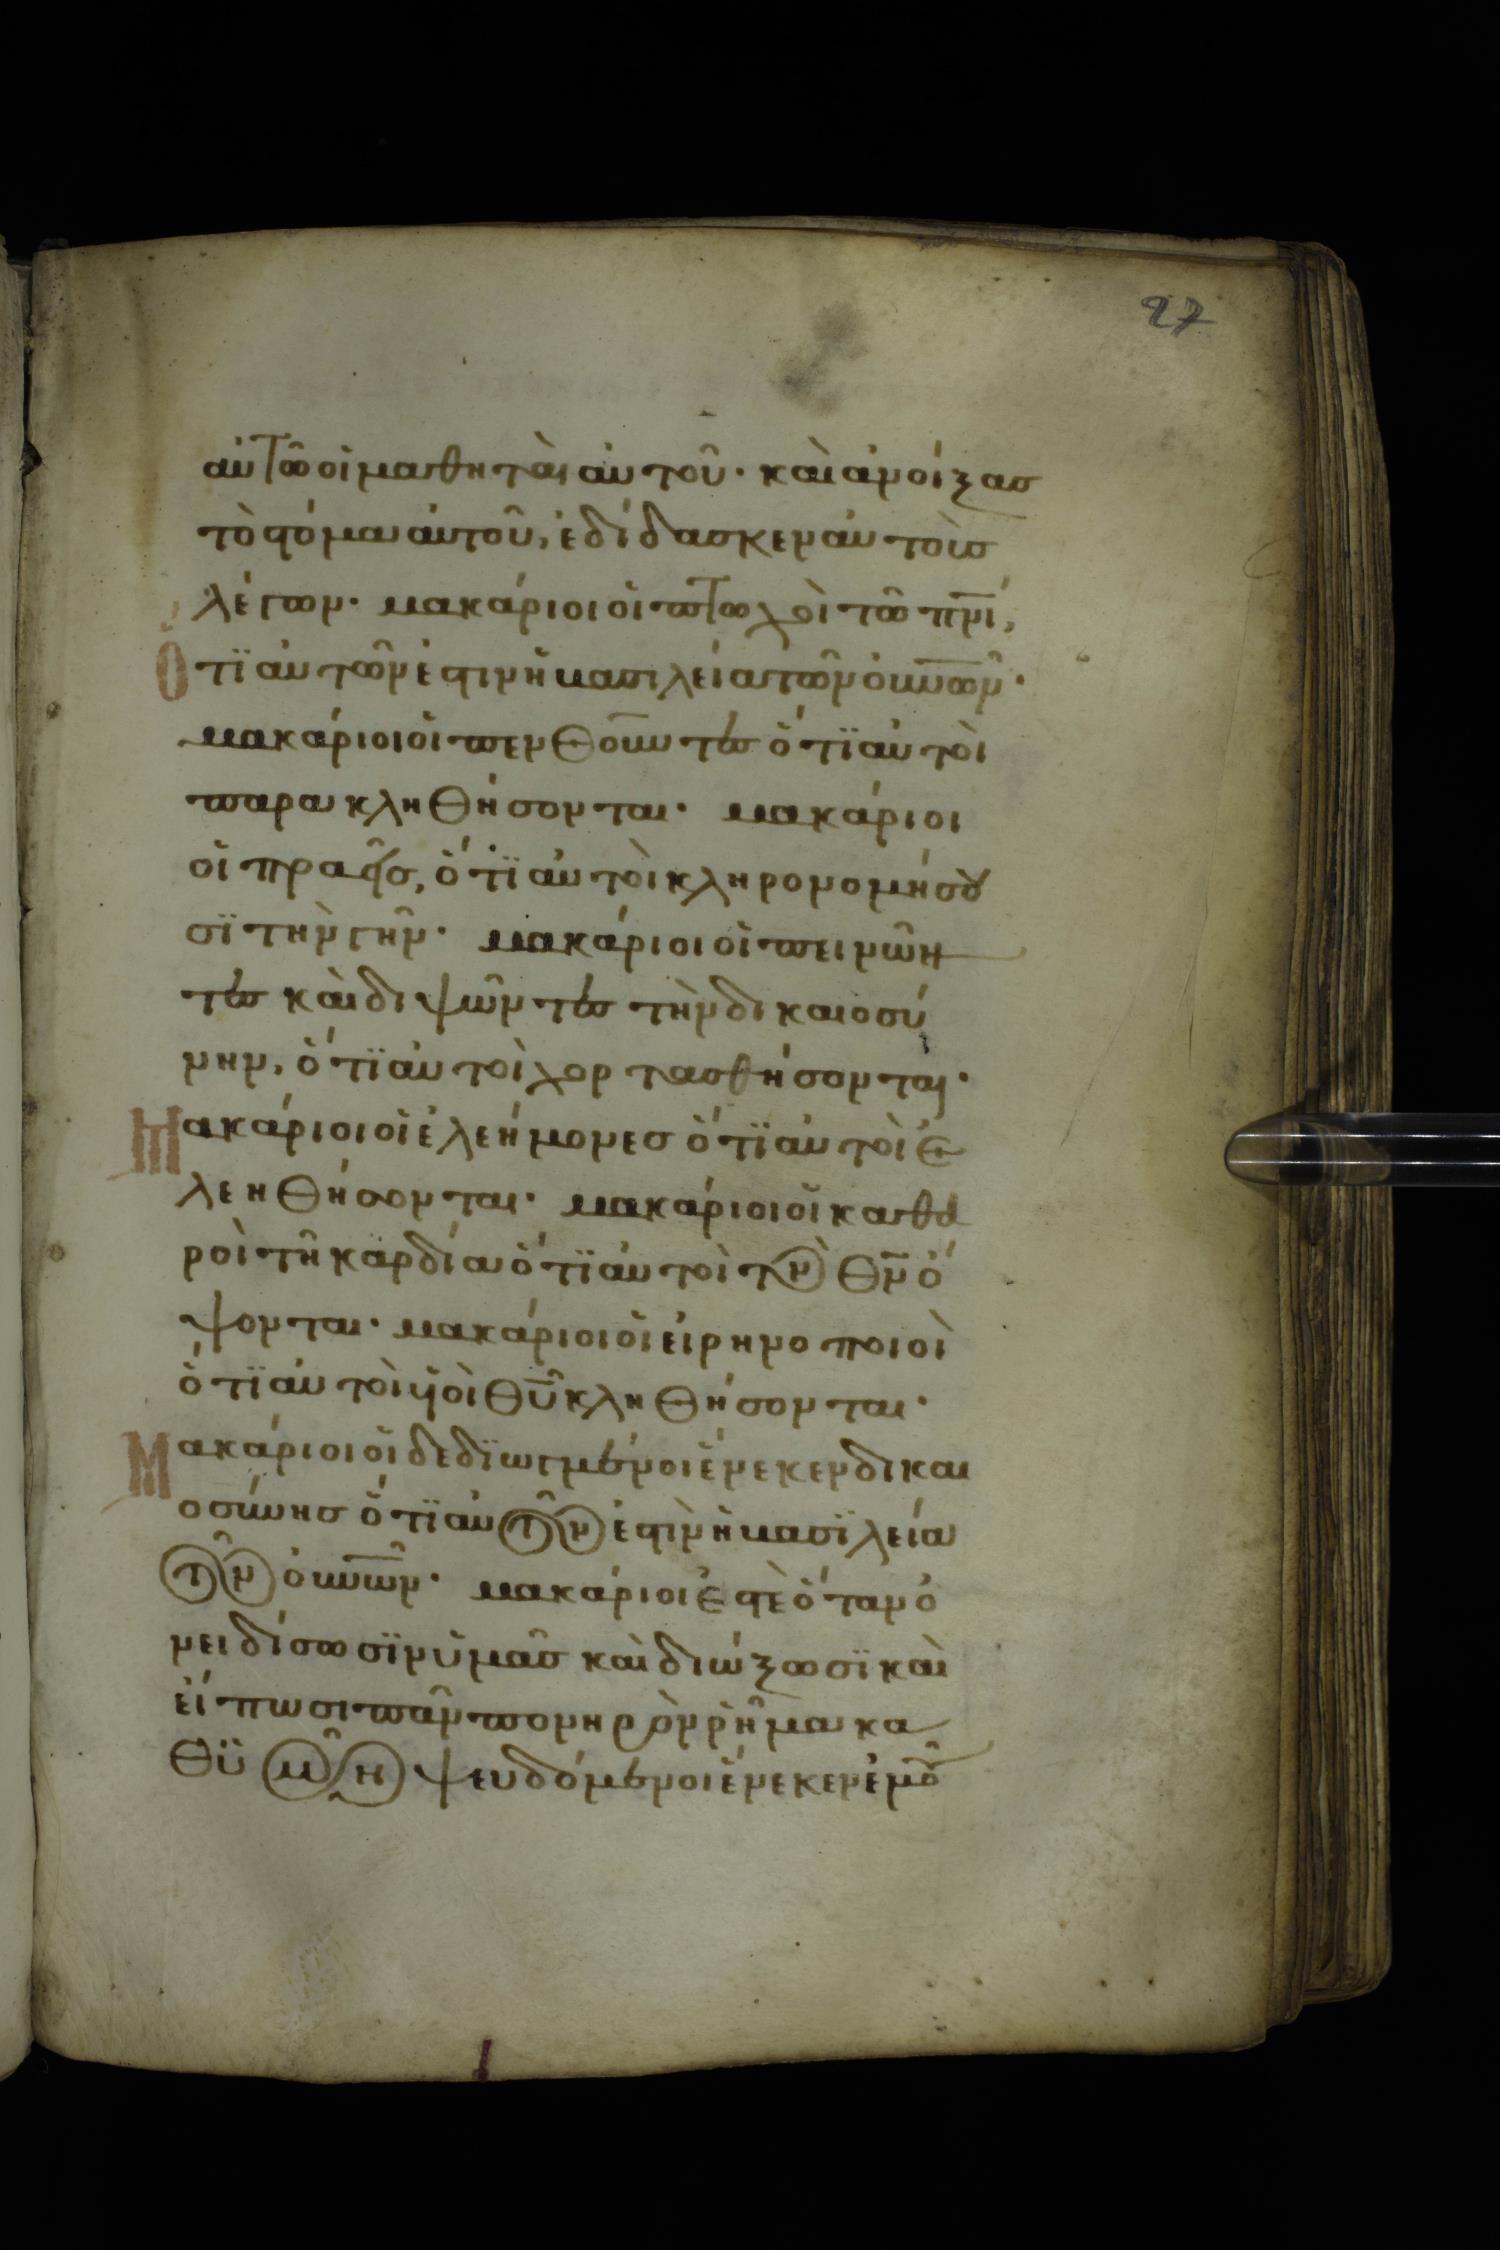 27
αὐτῶ οἱ μαθηταὶ αὐτοῦ· καὶ ἀνοίξας
τὸ στόμα αὐτοῦ, ἐδίδασκεν αὐτοὺς
λέγων· μακάριοι οἱ πτωχοὶ τῶ πν̅ι,
ὅτϊ αὐτῶν ἐστιν ἡ βασιλεία τῶν οὐν̅ῶν·
μακάριοι οἱ πενθοῦντες ὅτϊ αὐτοὶ
παρακληθήσονται· μακάριοι
οἱ πραεῖς, ὅτϊ αὐτοὶ κληρονομήσου
σϊ τὴν γῆν· μακάριοι οἱ πεινῶν
τες καὶ διψῶντες τὴν δικαιοσύ
νην, ὅτϊ αὐτοὶ χορτασθήσονται·
Μακάριοι οἱ ἐλεήμονες ὅτϊ αὐτοὶ ἐ
λεηθήσονται· μακάριοι οἱ καθα
ροὶ τῆ καρδία ὅτϊ αὐτοὶ τὸν θ̅ν ὄ
ψονται· μακάριοι οἱ εἰρηνοποιοὶ
ὅτϊ αὐτοὶ ὑοὶ θ̅υ κληθήσονται·
Μακάριοι οἱ δεδϊωγμένοι ἕνεκεν δικαι
οσύνης ὅτϊ αὐτῶν ἐστιν ἡ βασϊλεία
τῶν οὐν̅ῶν· μακάριοι ἐστὲ ὅταν ὀ
νειδίσωσϊν ὑμᾶς καὶ διώξωσϊ καὶ
εἴπωσι πᾶν πονηρὸν ῥῆμα κα
θϋμῶν ψευδόμενοι ἕνεκεν ἐμοῦ